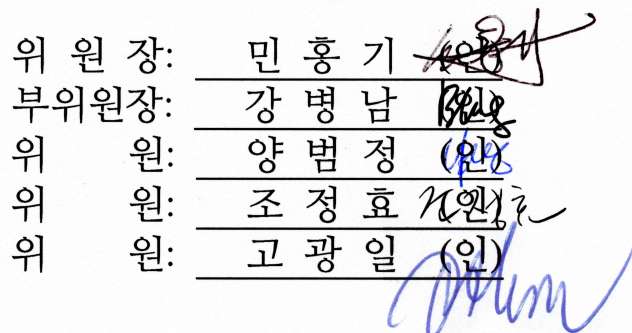 위 원 장: 민 홍 기 (인)
부위원장: 강 병 남 (인)
위 원: 양 범 정 (인)
위 원: 조 정 효 (인)
위 원: 고 광 일 (인)